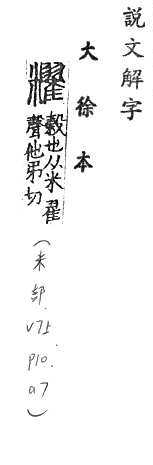 說文解字
大徐本
糶 穀也从米翟
聲他弔切
(米部.v7上.p10.a7)